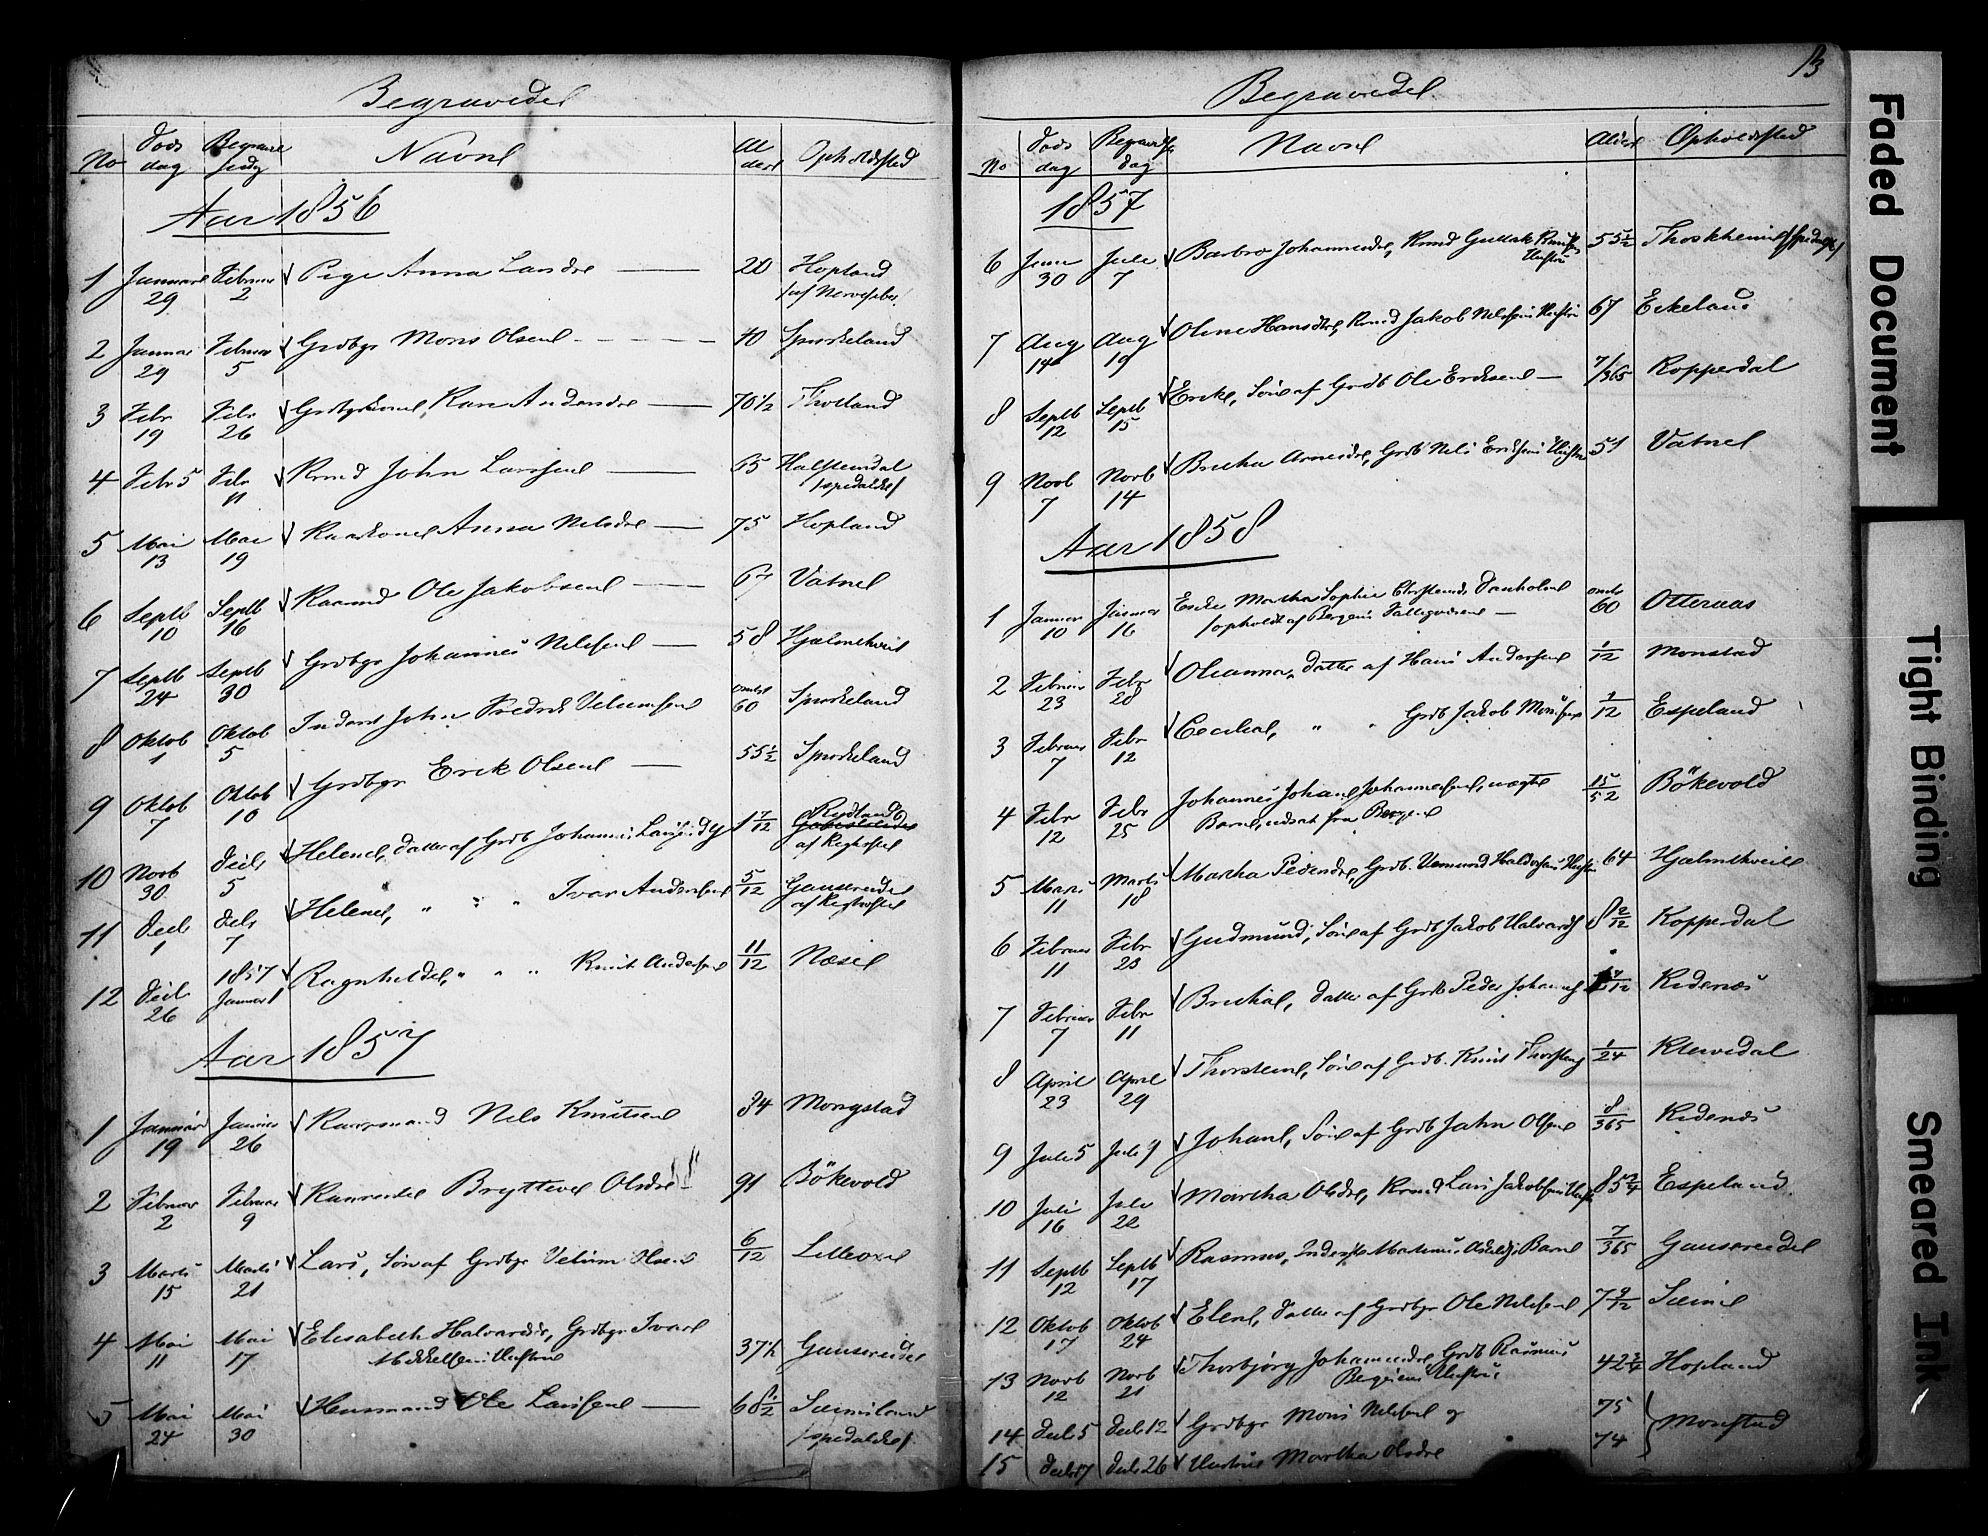 Begravede
No Døds dag Begravel sesdag Navne Al der Opholdssted
Aar 1856
1 Januar 29 Februar 2 Pige Anna Larsdr 20 Hopland
2 Januar 29 Februar 5 Grdbgr Mons Olsen 40 Spurkeland
3 Febr 19 Febr 26 Grdbgrkone, Kari Andersdr 70 1/2
4 Febr 5 Febr 11 Kmd John Larssen 65 Halstendal
/spedalsk/
5 Mai 13 Mai 19 Kaarkone Anna Nilsdr 75 Hopland
6 Septb 10 Septb 16 Kaarmd Ole Jakobsen 67 Vatne
7 Septb 24 Septb 30 Grdbgr Johannes Nilssen 58 Hjelmtveit
8 Oktob 1 Oktob 5 Inderst John Fredrik Velumsen omtr 60 Spurkeland
9 Oktob 7 Oktob 10 Grdbgr Erik Olsen 55 1/2 Spurkeland
10 Novb 30 Decb 5 Helene, Datter af Grdb Johannes 1 7/12 Rydland
11 Decb 1 Decb 7 Helene, " " " Ivar Anderssen 5/12 Gausereidet
12 Decb 26 1857 Januar 1 Ragnhilde, " " " Knut Anderssen 11/12 Næse
Aar 1857
1 Januar 19 Januar 26 Kaarmand Nils Knutsen 84 Mongstad
2 Februar 2 Februar 9 Brytteve Olsdr 91 Bökevold
3 Marts 15 Marts 21 Lars, Søn af Grdbgr Velum Olsen 6/12 Lilleoxe
4 Mai 11 Mai 17 Elisabeth Halvardsdr, Grdbgr Ivar
Mikkelsens Hustru 37 1/2 Gausereidet
5 Mai 24 Mai 30 Husmand Ole Larssen 68 1/2
/spedalsk/
Begravede 13
No Døds dag Begravels dag Navne Alder Opholdssted
1857
6 Juni 30 Juli 7 Barbro Johannesdr, Kmd Gullak
Hustru 55 1/2
7 Aug 14 Aug 19 Oline Hansdtr, Kmd Jakob Nilssens Hustru 67 Eikeland
8 Septb 12 Septb 15 Erik, Søn af Grdb Ole Eriksen 7/365 Kopperdal
9 Novb 7 Novb 14 Brita Arnesdr, Grdb Nils Eriksens Hustru 51 Vatne
Aar 1858
1 Januar 10 Januar 16 Enke Martha Sophie Danholm
/opholdt af Bergens Fattigvæsen omtr 60 Otteraas
2 Februar 23 Febr 28 Olianna, Datter af Hans Anderssen 1/12 Monstad
3 Februar 7 Febr 12 Cecilia, " " Grdb Jakob Monssen 1/12 Espeland
4 Febr 12 Febr 25 Johannes Johan Johannessen, uægte
Barn, udsat fra Bergen 15/52 Bökevold
5 Marts 11 Marts 18 Martha Pedersdr, Grdb. Vermund Haldorsens Hustru 64 Hjelmtveit
6 Februar 11 Febr 23 Gudmund, Søn af Grdb Jakob Halvards 8 2/12 Kopperdal
7 Februar 7 Febr 11 Brithe, Datter af Grdb Peder Johannes Kidenæs
8 April 23 April 29 Thorsten, Søn af Grdb. Knut Thorstens 1/24 Klevedal
9 Juli 5 Juli 9 Johan, Søn af Grdb John Olsen 8/365 Kidenæs
10 Juli 16 Juli 22 Martha Olsdr, Kmd Lars Jakobsens Hustru 85 Espeland
11 Septb 12 Septb 17 Rasmus, Barn 7/365 Gausereidet
12 Oktob 17 Oktob 24 Elen, Datter af Grdbgr Ole Nilssen 7 Seim
13 Novb 12 Novb 21 Thorbjørg Johannesdr, Grdb Rasmus
Hustru 42 Hopland
14 Decb 5 Decb 12 Grdbgr Mons Nilssen og 75 Monstad
15 Decb 17 Decb 26 Hustru Martha Olsdr 74
Faded Document
Tight Binding
Smeared Ink